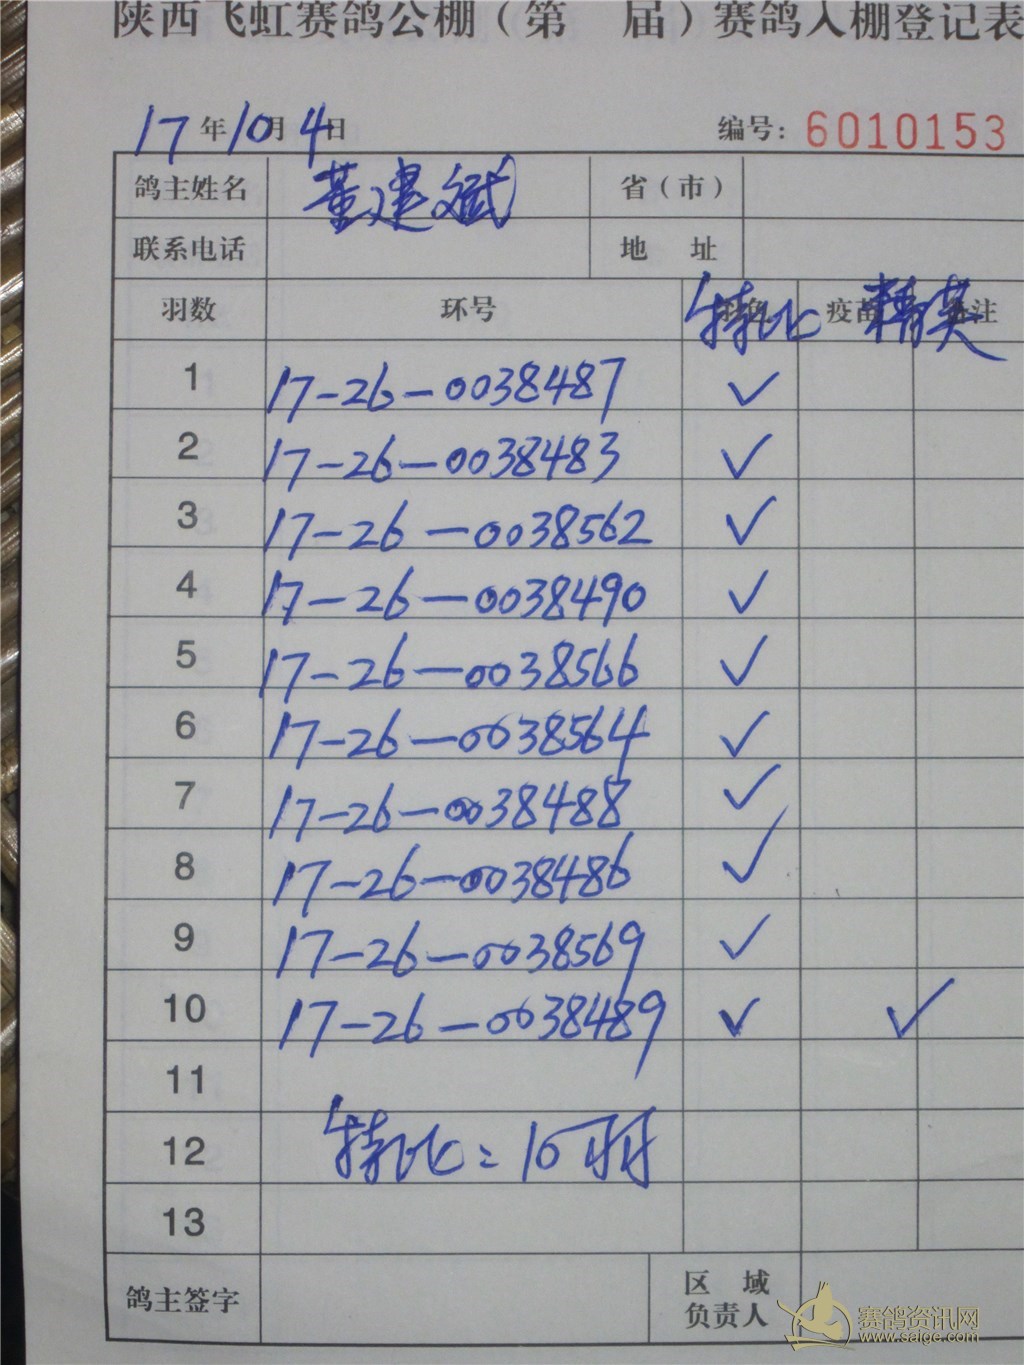 陕西飞虹赛鸽公棚（第 届）赛鸽入棚登记表
17年10月4日 编号：6010153
鸽主姓名 董建斌 省（市）
联系电话 地 址
羽数 环号 羽色 特比 疫苗 精英 备注
1 17-26-0038487 ✓
2 17-26-0038483 ✓
3 17-26-0038562 ✓
4 17-26-0038490 ✓
5 17-26-0038566 ✓
6 17-26-0038564 ✓
7 17-26-0038488 ✓
8 17-26-0038486 ✓
9 17-26-0038569 ✓
10 17-26-0038489 ✓ ✓
11
12 特比：10羽
13
鸽主签字 区 域
负责人
赛鸽资讯网
www.saige.com